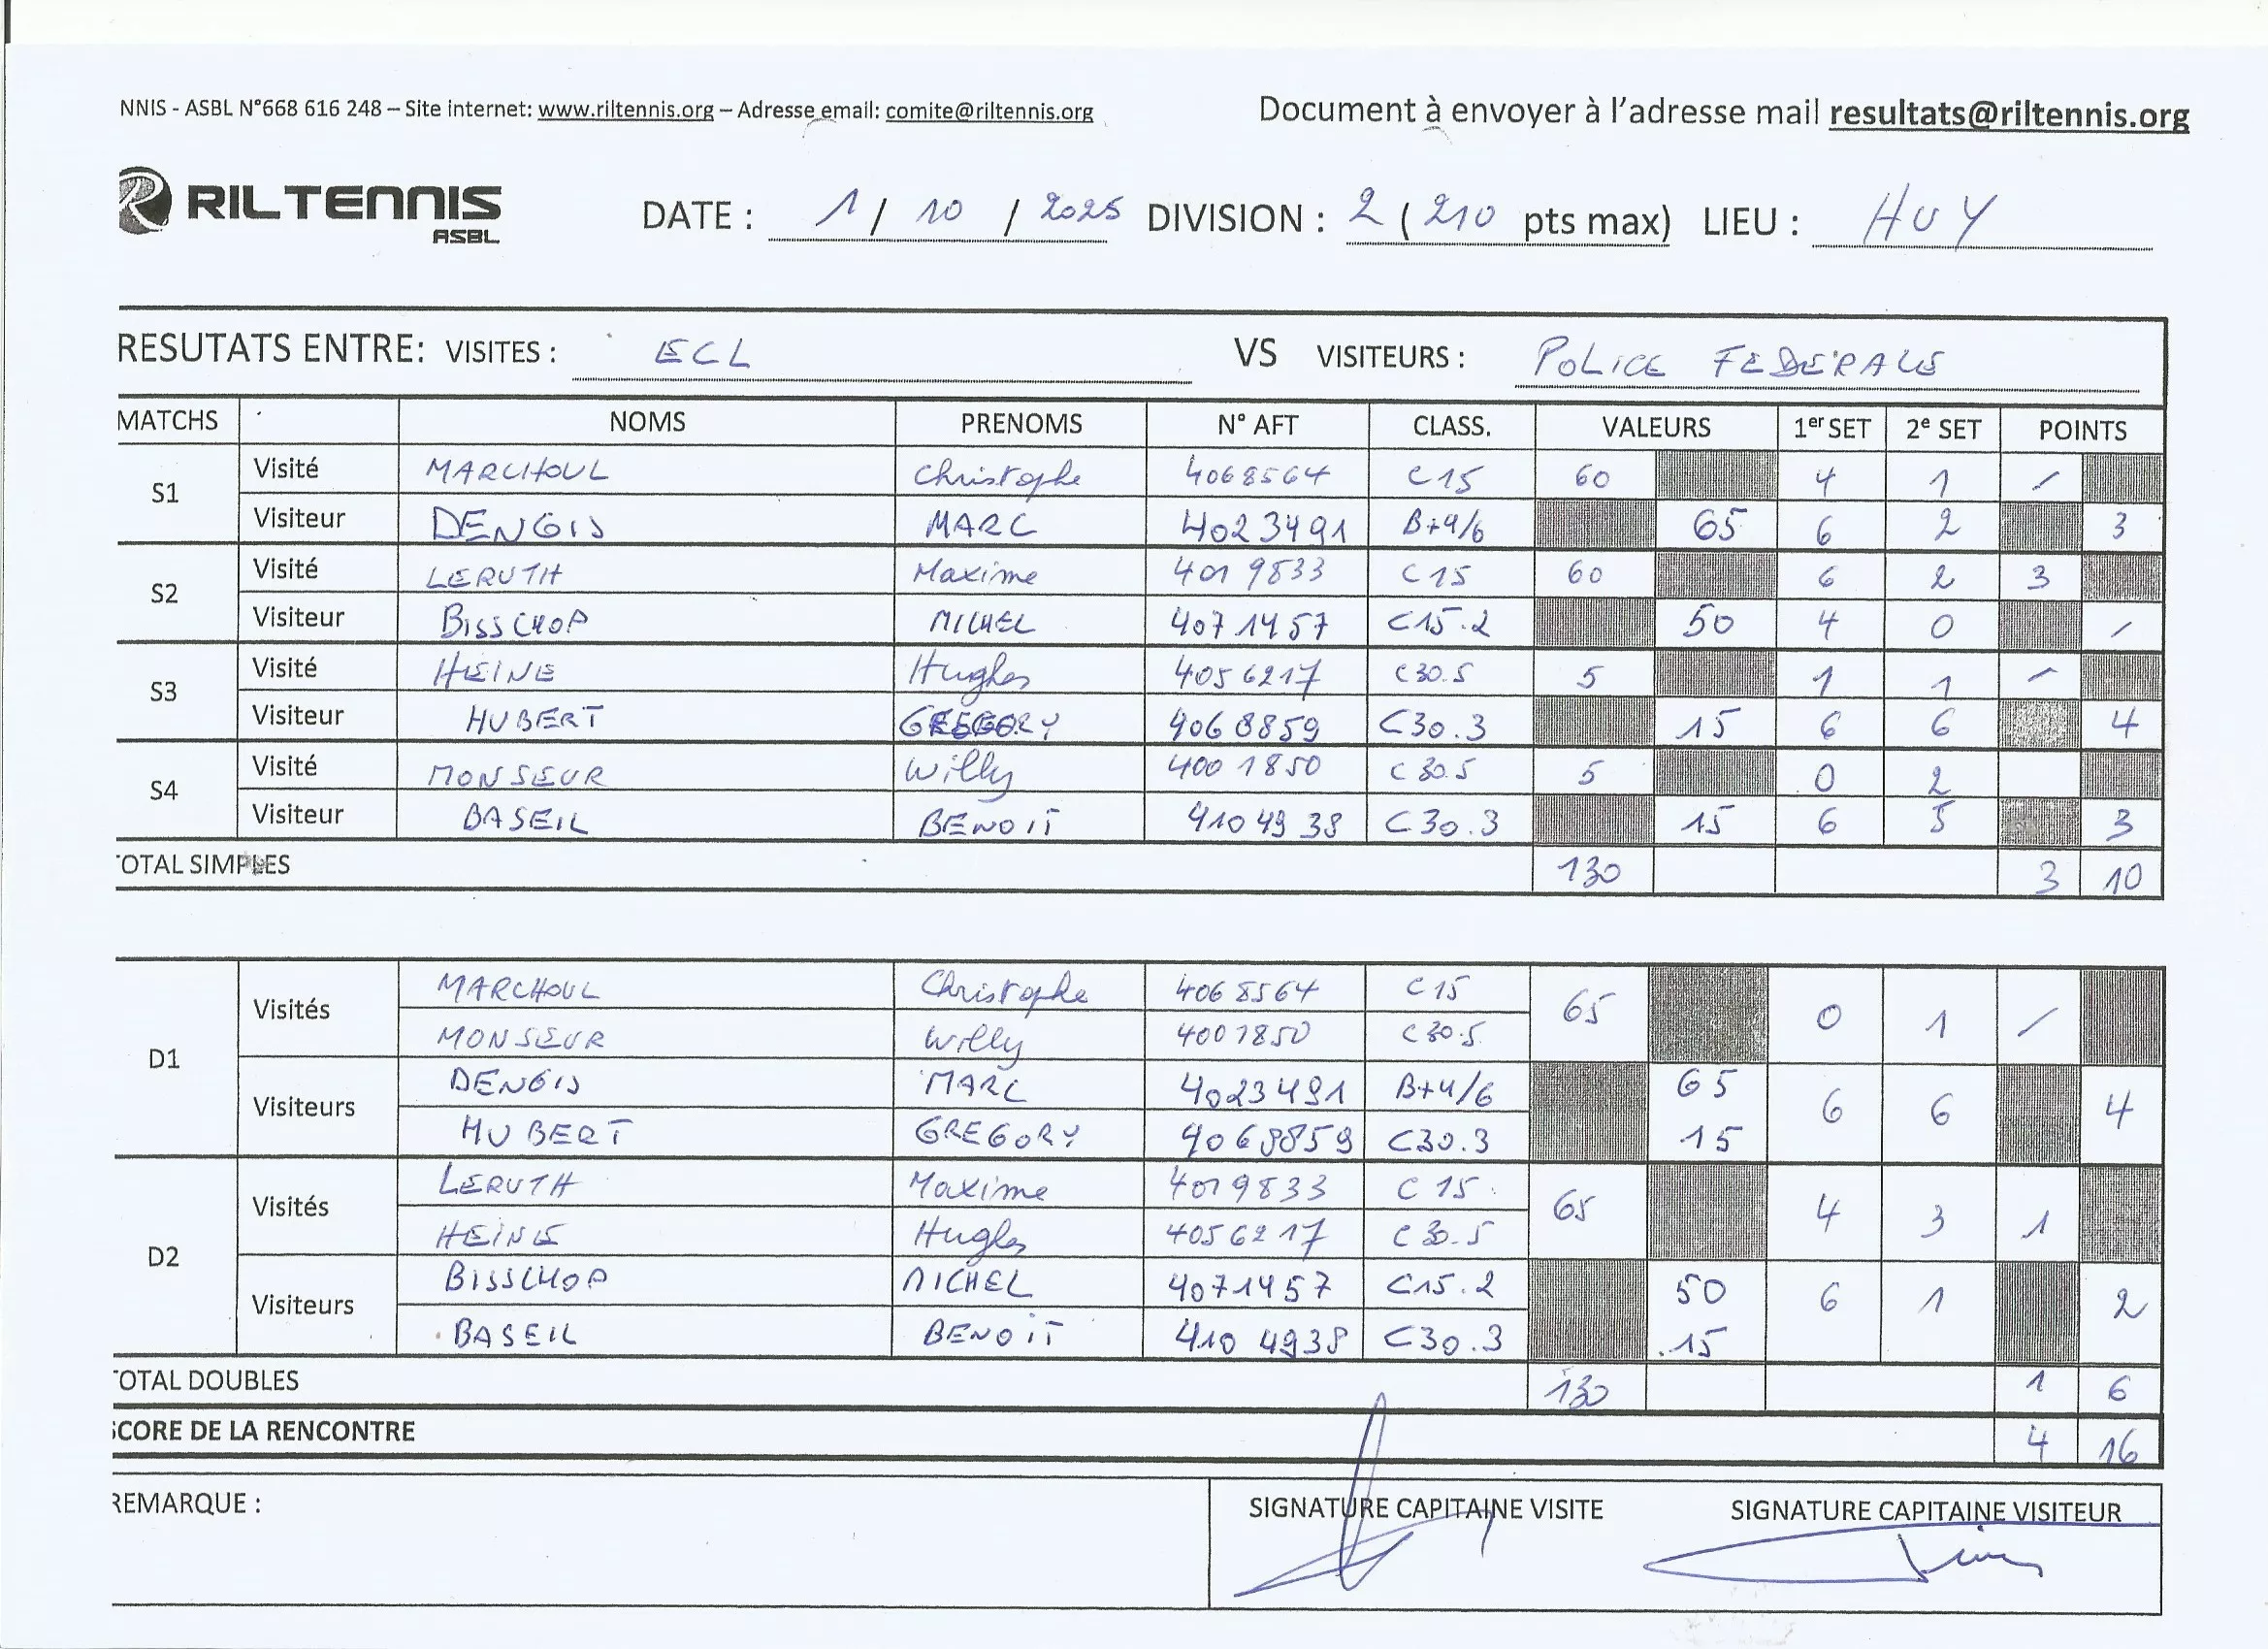 NNIS - ASBL N°668 616 248 – Site internet: www.riltennis.org – Adresse email: comite@riltennis.org Document à envoyer à l'adresse mail resultats@riltennis.org
RILTENNIS ASBL DATE : 1 / 10 / 2025 DIVISION : 2 ( 210 pts max) LIEU : HUY
RESUTATS ENTRE: VISITES : ECL VS VISITEURS : POLICE FEDERALE
MATCHS NOMS PRENOMS N° AFT CLASS. VALEURS 1er SET 2e SET POINTS
S1
Visité MARCHOUL Christophe 4068564 C15 60 4 1 /
Visiteur DENGIS MARC 4023491 B+4/6 65 6 2 3
S2
Visité LERUTH Maxime 4019833 C15 60 6 2 3
Visiteur BISSCHOP MICHEL 4071457 C15.2 50 4 0 /
S3
Visité HEINE Hughes 4056217 C30.5 5 1 1 /
Visiteur HUBERT GREGORY 4068859 C30.3 15 6 6 4
S4
Visité MONSEUR Willy 4001850 C30.5 5 0 2
Visiteur BASEIL BENOIT 4104938 C30.3 15 6 5 3
OTAL SIMPLES 130 3 10
D1
Visités MARCHOUL Christophe 4068564 C15 65 0 1 /
MONSEUR Willy 4001850 C30.5
Visiteurs DENGIS MARC 4023491 B+4/6 65 6 6 4
HUBERT GREGORY 4068859 C30.3 15
D2
Visités LERUTH Maxime 4019833 C15 65 4 3 1
HEINE Hughes 4056217 C30.5
Visiteurs BISSCHOP MICHEL 4071457 C15.2 50 6 1 2
BASEIL BENOIT 4104938 C30.3 15
OTAL DOUBLES 130 1 6
SCORE DE LA RENCONTRE 4 16
REMARQUE :
SIGNATURE CAPITAINE VISITE SIGNATURE CAPITAINE VISITEUR